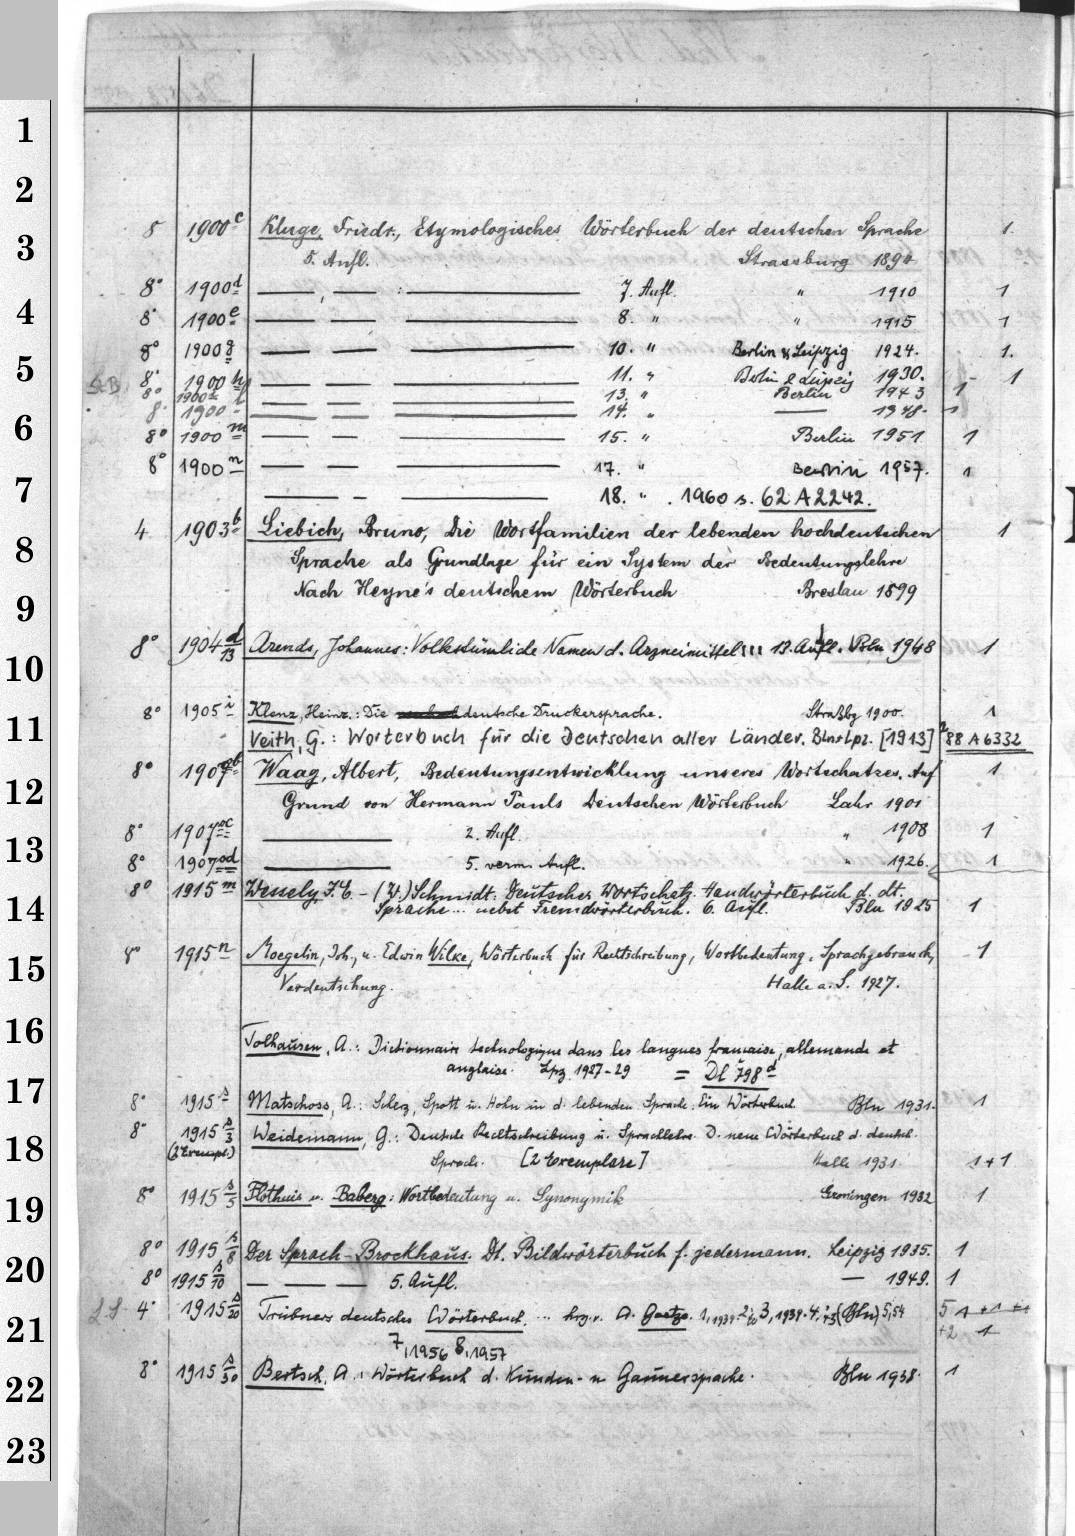 1
2
3
4
5
6
7
8
9
10
11
12
13
14
15
16
17
18
19
20
21
22
23
8 1900 c Kluge, Friedr., Etymologisches Wörterbuch der deutschen Sprache 1.
5. Aufl. Strassburg 1894
8° 1900 d — , — : — 7. Aufl. " 1910 1
8° 1900 e — — — 8. " " 1915 1
8° 1900 g — — — 10. " Berlin & Leipzig 1924. 1.
8° 1900 h — — — 11. " Berlin & Leipzig 1930. 1
8° 1900 13. " Berlin 1943 1
8° 1900 l — — — 14. " — 1948. 1
8° 1900 m — — — 15. " Berlin 1951 1
8° 1900 n — — — 17. " Berlin 1957. 1
— — — 18. " . 1960 s. 62 A 2242.
4 1903 b Liebich, Bruno, Die Wortfamilien der lebenden hochdeutschen 1
Sprache als Grundlage für ein System der Bedeutungslehre
Nach Heyne's deutschem Wörterbuch Breslau 1899
8° 1904 d/13 Arends, Johannes: Volkstümliche Namen d. Arzneimittel... 13. Aufl. Bln 1948 1
8° 1905 i Klenz, Heinr.: Die deutsche Druckersprache. Straßbg 1900. 1
Veith, G.: Wörterbuch für die Deutschen aller Länder. Bln u. Lpz. [1913] 88 A 6332
8° 1907 ob Waag, Albert, Bedeutungsentwicklung unseres Wortschatzes. Auf 1
Grund von Hermann Pauls Deutschen Wörterbuch Lahr 1901
8° 1907 oc — 2. Aufl. " 1908 1
8° 1907 od — 5. verm. Aufl. " 1926. 1
8° 1915 m Wessely, I. E. - (W.) Schmidt: Deutscher Wortschatz. Handwörterbuch d. dt.
Sprache ... nebst Fremdwörterbuch. 6. Aufl. Bln 1925 1
8° 1915 n Moegelin, Joh., u. Edwin Wilke, Wörterbuch für Rechtschreibung, Wortbedeutung, Sprachgebrauch, 1
Verdeutschung. Halle a. S. 1927.
Tolhausen, A.: Dictionnaire technologique dans les langues française, allemande et
anglaise. Lpz. 1927-29 = Dl 798 d
8° 1915 s Matschoss, A.: Scherz, Spott u. Hohn in d. lebenden Sprache. Ein Wörterbuch Bln 1931. 1
8° 1915 s/3 Weidemann, G.: Deutsche Rechtschreibung u. Sprachlehre. D. neue Wörterbuch d. deutsch.
(2 Exempl.) Sprach. [2 Exemplare] Halle 1931 1+1
8° 1915 s/5 Plothuis u. Baberg: Wortbedeutung u. Synonymik Groningen 1932 1
8° 1915 s/8 Der Sprach-Brockhaus. Dt. Bildwörterbuch f. jedermann. Leipzig 1935. 1
8° 1915 s/10 — — — 5. Aufl. — 1949. 1
LS 4° 1915 s/20 Trübners deutsches Wörterbuch. ... hrsg. v. A. Goetze. (Bln) 5,54
+2 1
7,1956 8,1957
8° 1915 s/30 Bertsch, A.: Wörterbuch d. Kunden- u Gaunersprache. Bln 1938. 1